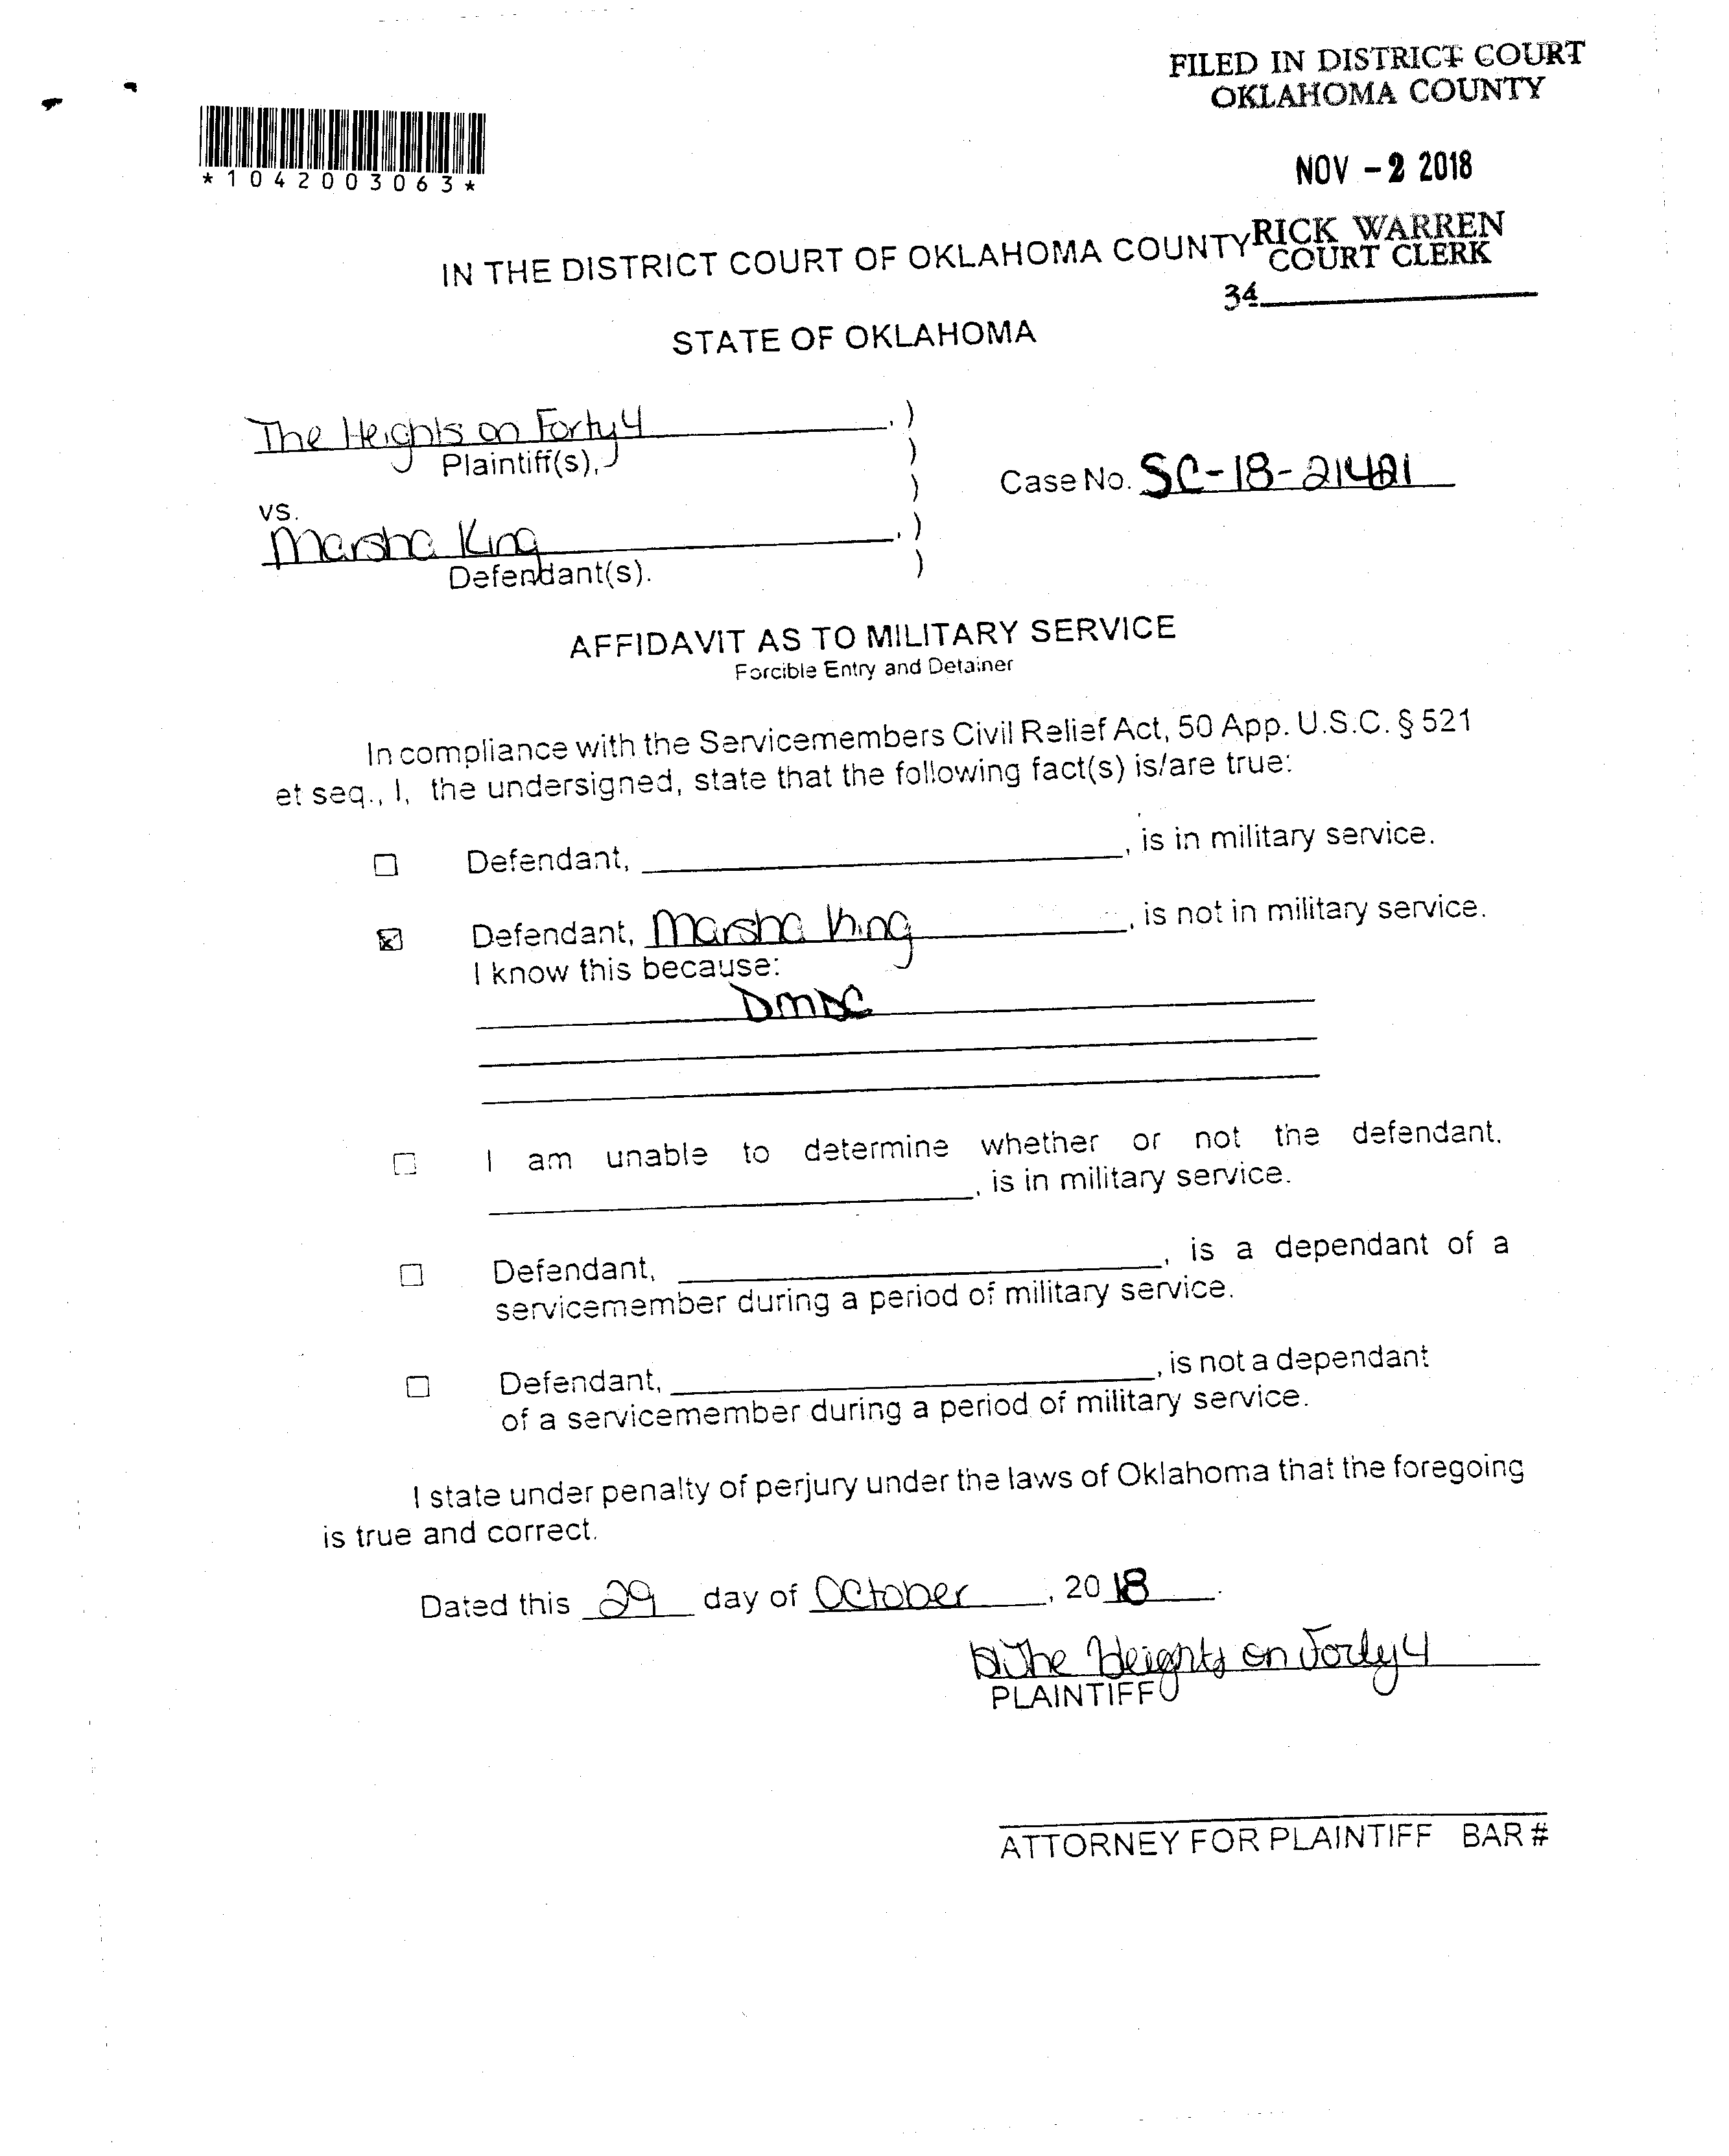 FILED IN DISTRICT COURT
OKLAHOMA COUNTY
*1042003063*
NOV - 2 2018
RICK WARREN
COURT CLERK
34
IN THE DISTRICT COURT OF OKLAHOMA COUNTY
STATE OF OKLAHOMA
The Heights on Forty 4 , )
Plaintiff(s), )
Case No. SC-18-21421
)
vs.
Marsha King , )
Defendant(s). )
AFFIDAVIT AS TO MILITARY SERVICE
Forcible Entry and Detainer
In compliance with the Servicemembers Civil Relief Act, 50 App. U.S.C. § 521
et seq., I, the undersigned, state that the following fact(s) is/are true:
☐ Defendant, , is in military service.
☒ Defendant, Marsha King , is not in military service.
I know this because:
DMDC
☐ I am unable to determine whether or not the defendant,
, is in military service.
☐ Defendant, , is a dependant of a
servicemember during a period of military service.
☐ Defendant, , is not a dependant
of a servicemember during a period of military service.
I state under penalty of perjury under the laws of Oklahoma that the foregoing
is true and correct.
Dated this 29 day of October , 20 18 .
The Heights on Forty 4
PLAINTIFF
ATTORNEY FOR PLAINTIFF BAR #